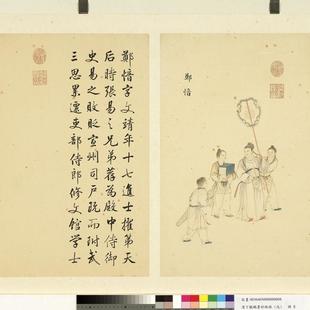 鄭愔
鄭愔字文靖年十七進士擢第天
后時張易之兄弟荐為殿中侍御
史易之敗貶宣州司戶既而附武
三思累遷吏部侍郎修文館學士